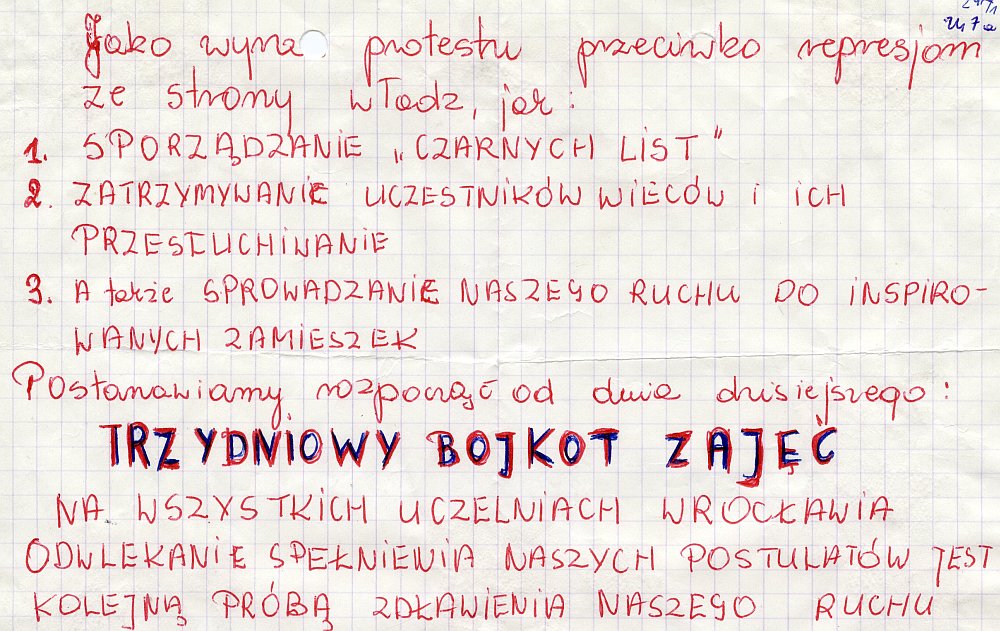 Jako wyraz protestu przeciwko represjom
ze strony władz, jak:
1. SPORZĄDZANIE „CZARNYCH LIST"
2. ZATRZYMYWANIE UCZESTNIKÓW WIECÓW I ICH
PRZESŁUCHIWANIE
3. A także SPROWADZANIE NASZEGO RUCHU DO INSPIRO-
WANYCH ZAMIESZEK
Postanawiamy rozpocząć od dnia dzisiejszego:
TRZYDNIOWY BOJKOT ZAJĘĆ
NA WSZYSTKICH UCZELNIACH WROCŁAWIA
ODWLEKANIE SPEŁNIENIA NASZYCH POSTULATÓW JEST
KOLEJNĄ PRÓBĄ ZDŁAWIENIA NASZEGO RUCHU